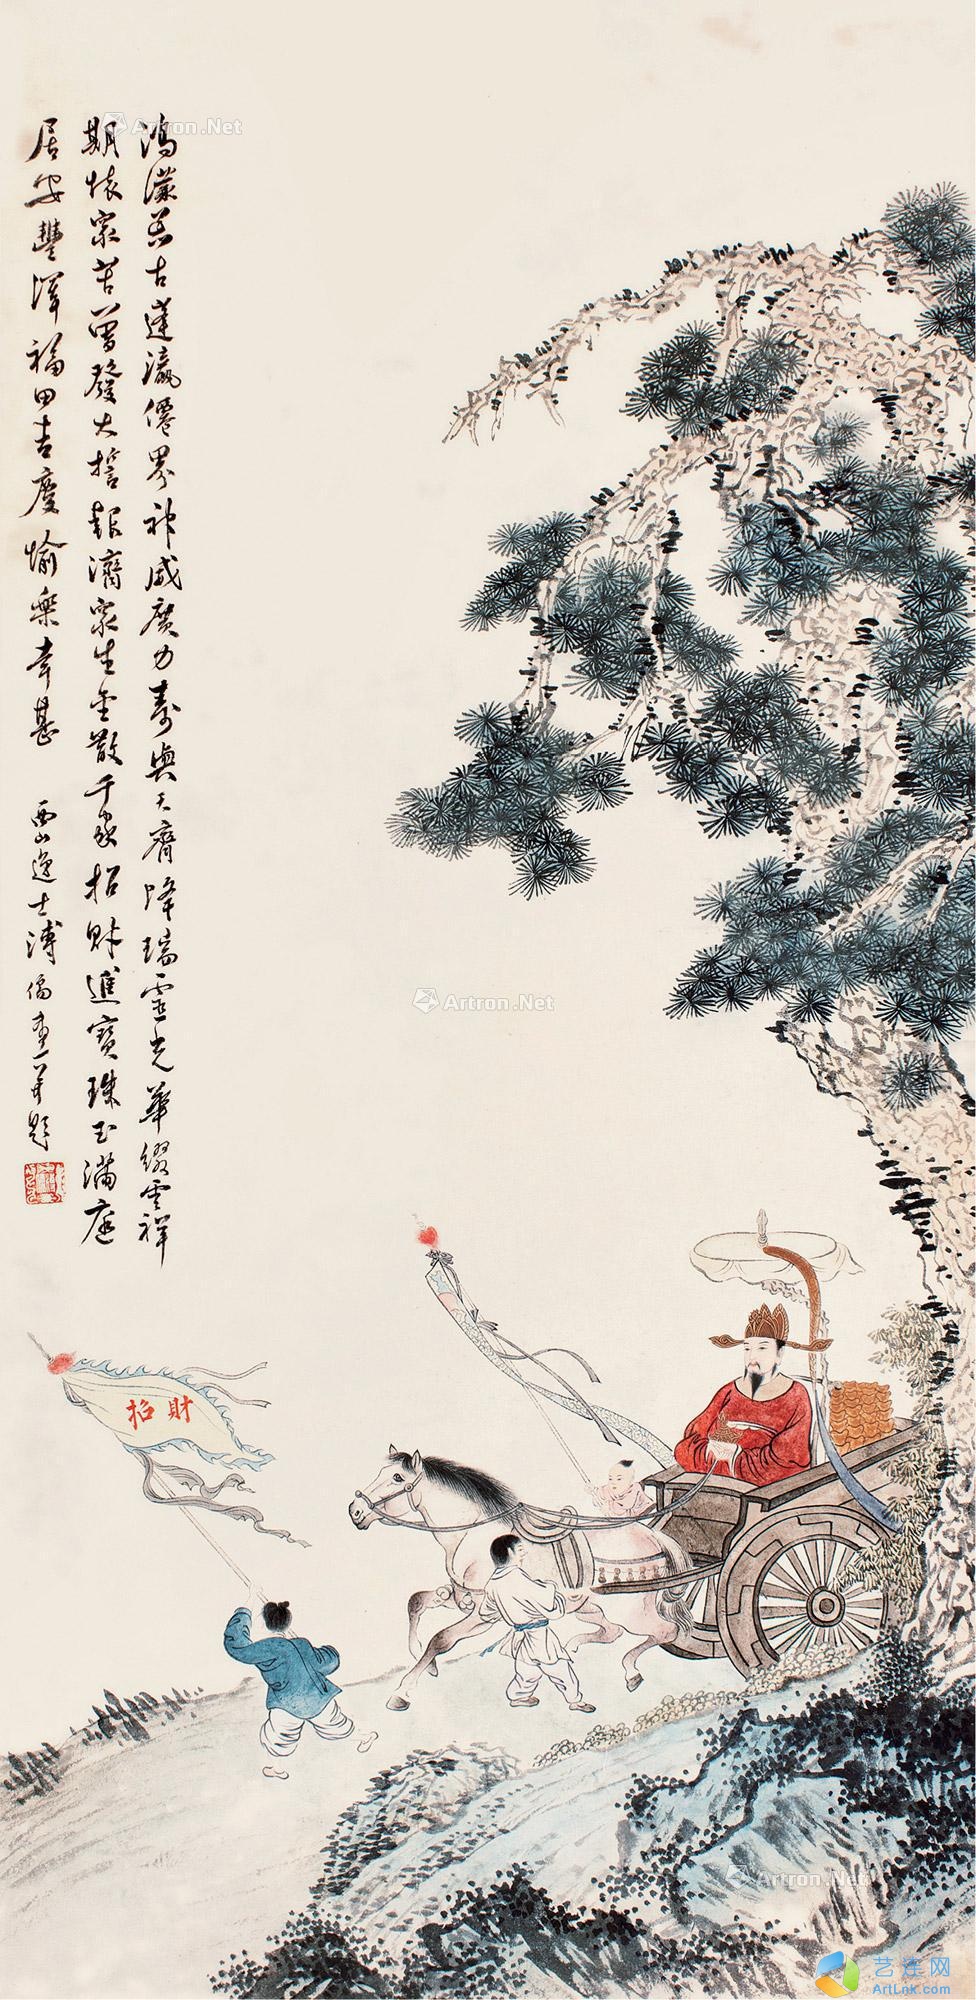 鴻濛荒古蓬瀛僊界神威广力壽與天齊降瑞靈光華綴雲祥
期懷眾苦曾發大
報濟眾生金散千家招財進寶珠玉滿庭
居安豐澤福田吉慶愉樂幸甚
西山逸士溥儒畫并題
招財
Artron.Net
Artron.Net
Artron.Net
艺连网
ArtLnk.com